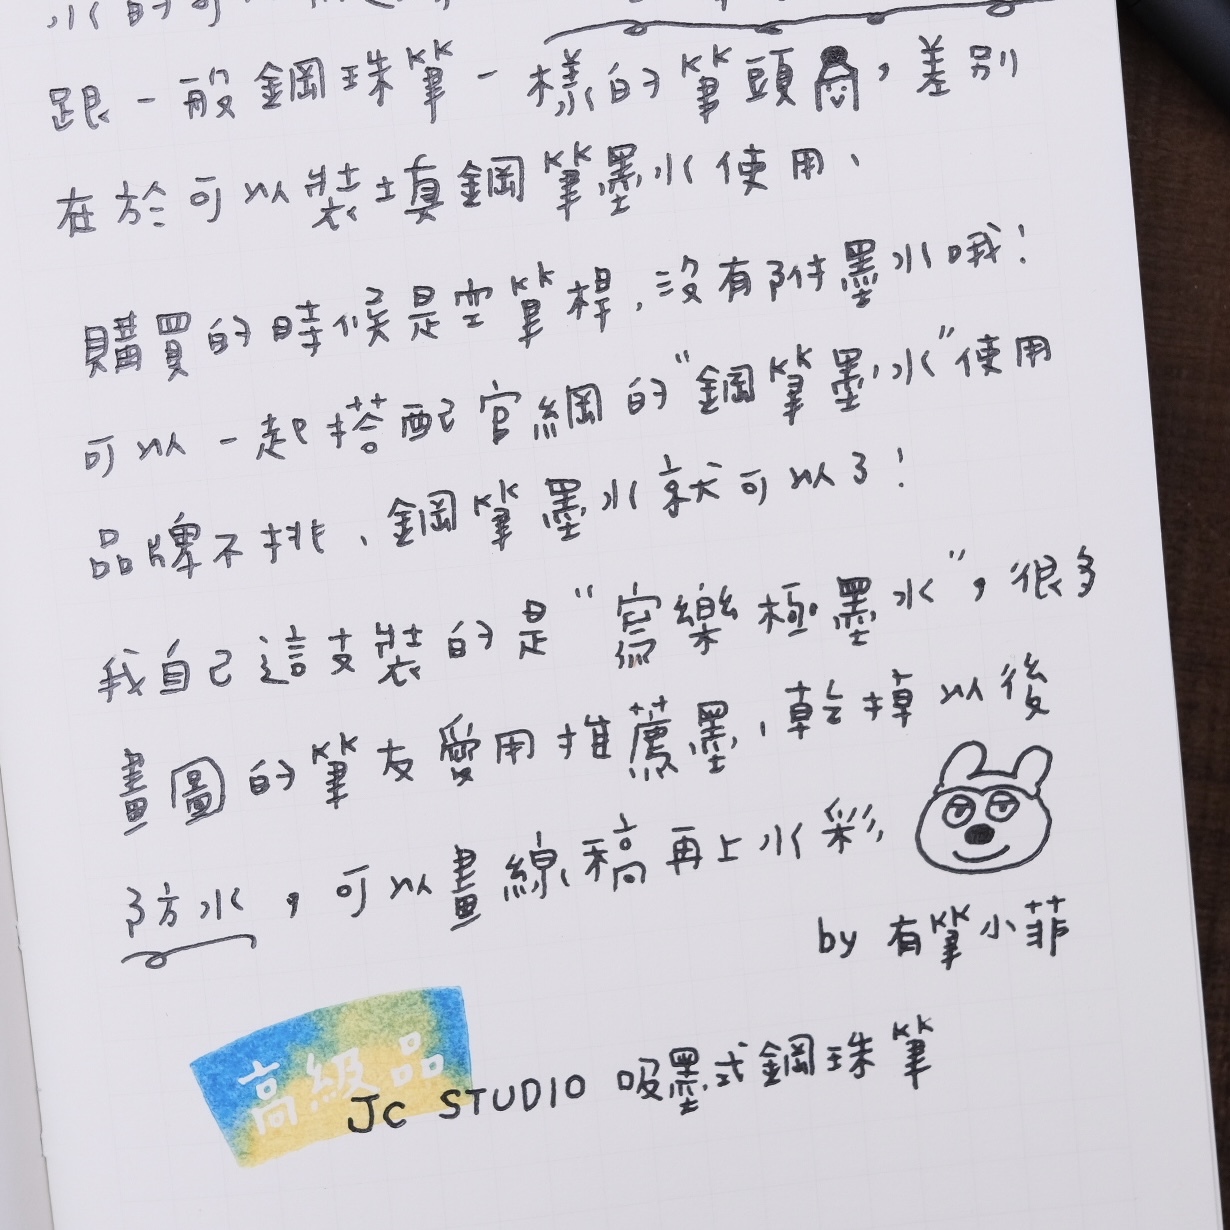 水的
跟一般鋼珠筆一樣的筆頭，差別
在於可以裝填鋼筆墨水使用、
購買的時候是空筆桿、沒有附墨水哦！
可以一起搭配官網的"鋼筆墨水"使用
品牌不挑、鋼筆墨水就可以了！
我自己這支裝的是"寫樂極墨水"，很多
畫圖的筆友愛用推薦墨、乾掉以後
防水，可以畫線稿再上水彩
by 有筆小菲
高級品
JC STUDIO 吸墨式鋼珠筆